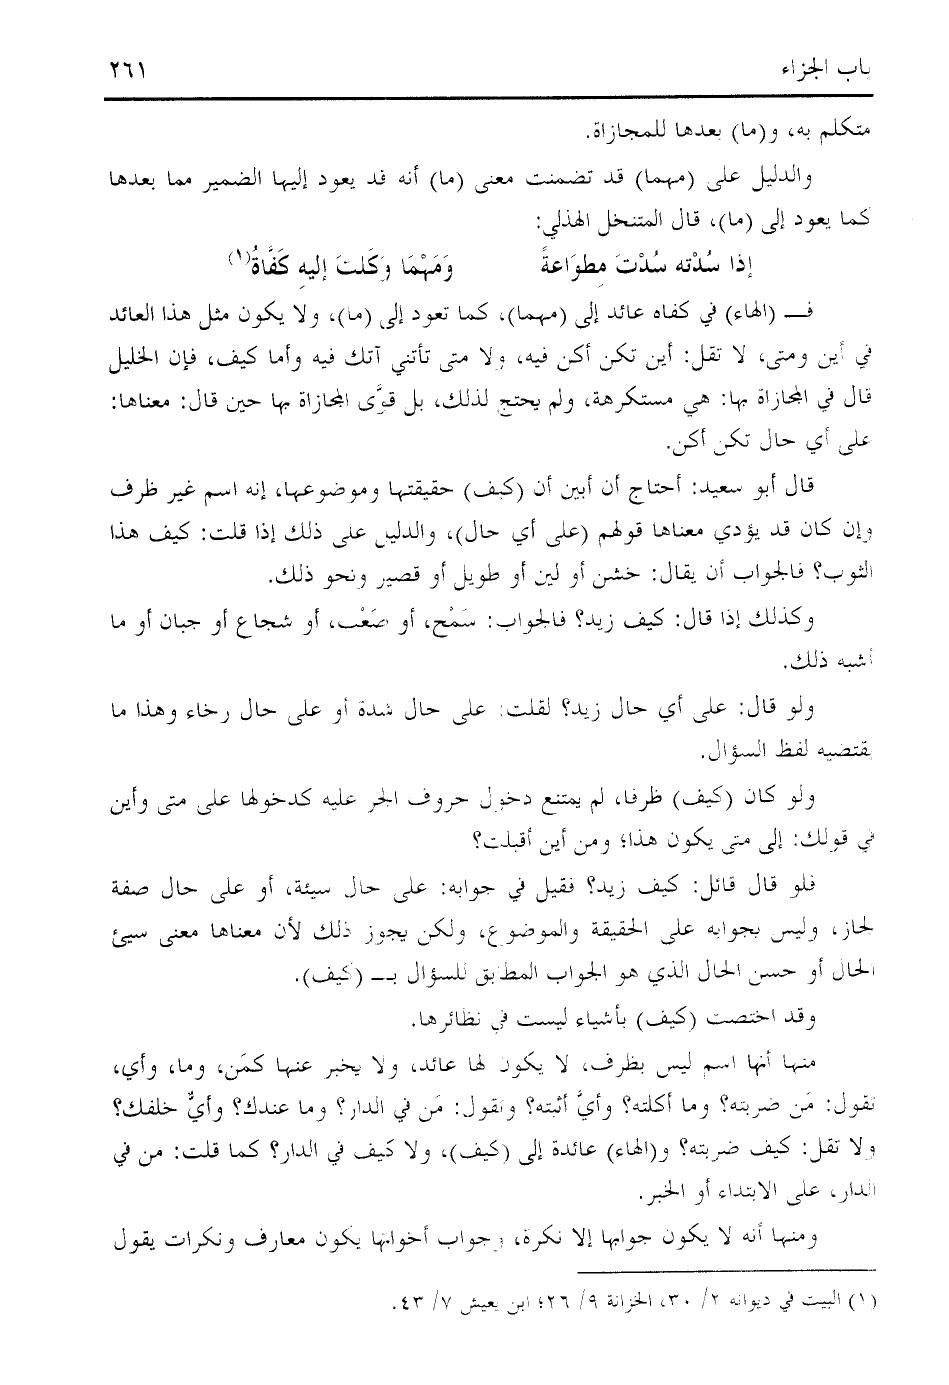 باب الجزاء ٢٦١
متكلم به، و(ما) بعدها للمجازاة.
والدليل على (مهما) قد تضمنت معنى (ما) أنه قد يعود إليها الضمير مما بعدها
كما يعود إلى (ما)، قال المتنخل الهذلي:
إذا سُدْته سُدْتَ مطوَاعةً وَمَهْمَا وكَلتَ إليه كَفَّاهُ(١)
فــ (الهاء) في كفاه عائد إلى (مهما)، كما تعود إلى (ما)، ولا يكون مثل هذا العائد
في أين ومتى، لا تقل: أين تكن أكن فيه، ولا متى تأتني آتك فيه وأما كيف، فإن الخليل
قال في المجازاة بها: هي مستكرهة، ولم يحتج لذلك، بل قوَّى المجازاة بها حين قال: معناها:
على أي حال تكن أكن.
قال أبو سعيد: أحتاج أن أبين أن (كيف) حقيقتها وموضوعها، إنه اسم غير ظرف
وإن كان قد يؤدي معناها قولهم (على أي حال)، والدليل على ذلك إذا قلت: كيف هذا
الثوب؟ فالجواب أن يقال: خشن أو لين أو طويل أو قصير ونحو ذلك.
وكذلك إذا قال: كيف زيد؟ فالجواب: سَمْح، أو صَعْب، أو شجاع أو جبان أو ما
أشبه ذلك.
ولو قال: على أي حال زيد؟ لقلت: على حال شدة أو على حال رخاء وهذا ما
يقتضيه لفظ السؤال.
ولو كان (كيف) ظرفا، لم يمتنع دخول حروف الجر عليه كدخولها على متى وأين
في قولك: إلى متى يكون هذا؛ ومن أين أقبلت؟
فلو قال قائل: كيف زيد؟ فقيل في جوابه: على حال سيئة، أو على حال صفة
لجاز، وليس بجوابه على الحقيقة والموضوع، ولكن يجوز ذلك لأن معناها معنى سيئ
الحال أو حسن الحال الذي هو الجواب المطابق للسؤال بــ (كيف).
وقد اختصت (كيف) بأشياء ليست في نظائرها.
منها أنها اسم ليس بظرف، لا يكون لها عائد، ولا يخبر عنها كمَن، وما، وأي،
تقول: مَن ضربته؟ وما أكلته؟ وأيَّ أتيته؟ وتقول: مَن في الدار؟ وما عندك؟ وأيٌّ خلفك؟
ولا تقل: كيف ضربته؟ و(الهاء) عائدة إلى (كيف)، ولا كيف في الدار؟ كما قلت: من في
الدار، على الابتداء أو الخبر.
ومنها أنه لا يكون جوابها إلا نكرة، وجواب أخواتها يكون معارف ونكرات يقول
(١) البيت في ديوانه ٢/ ٣٠، الخزانة ٩/ ٢٦؛ ابن يعيش ٧/ ٤٣.